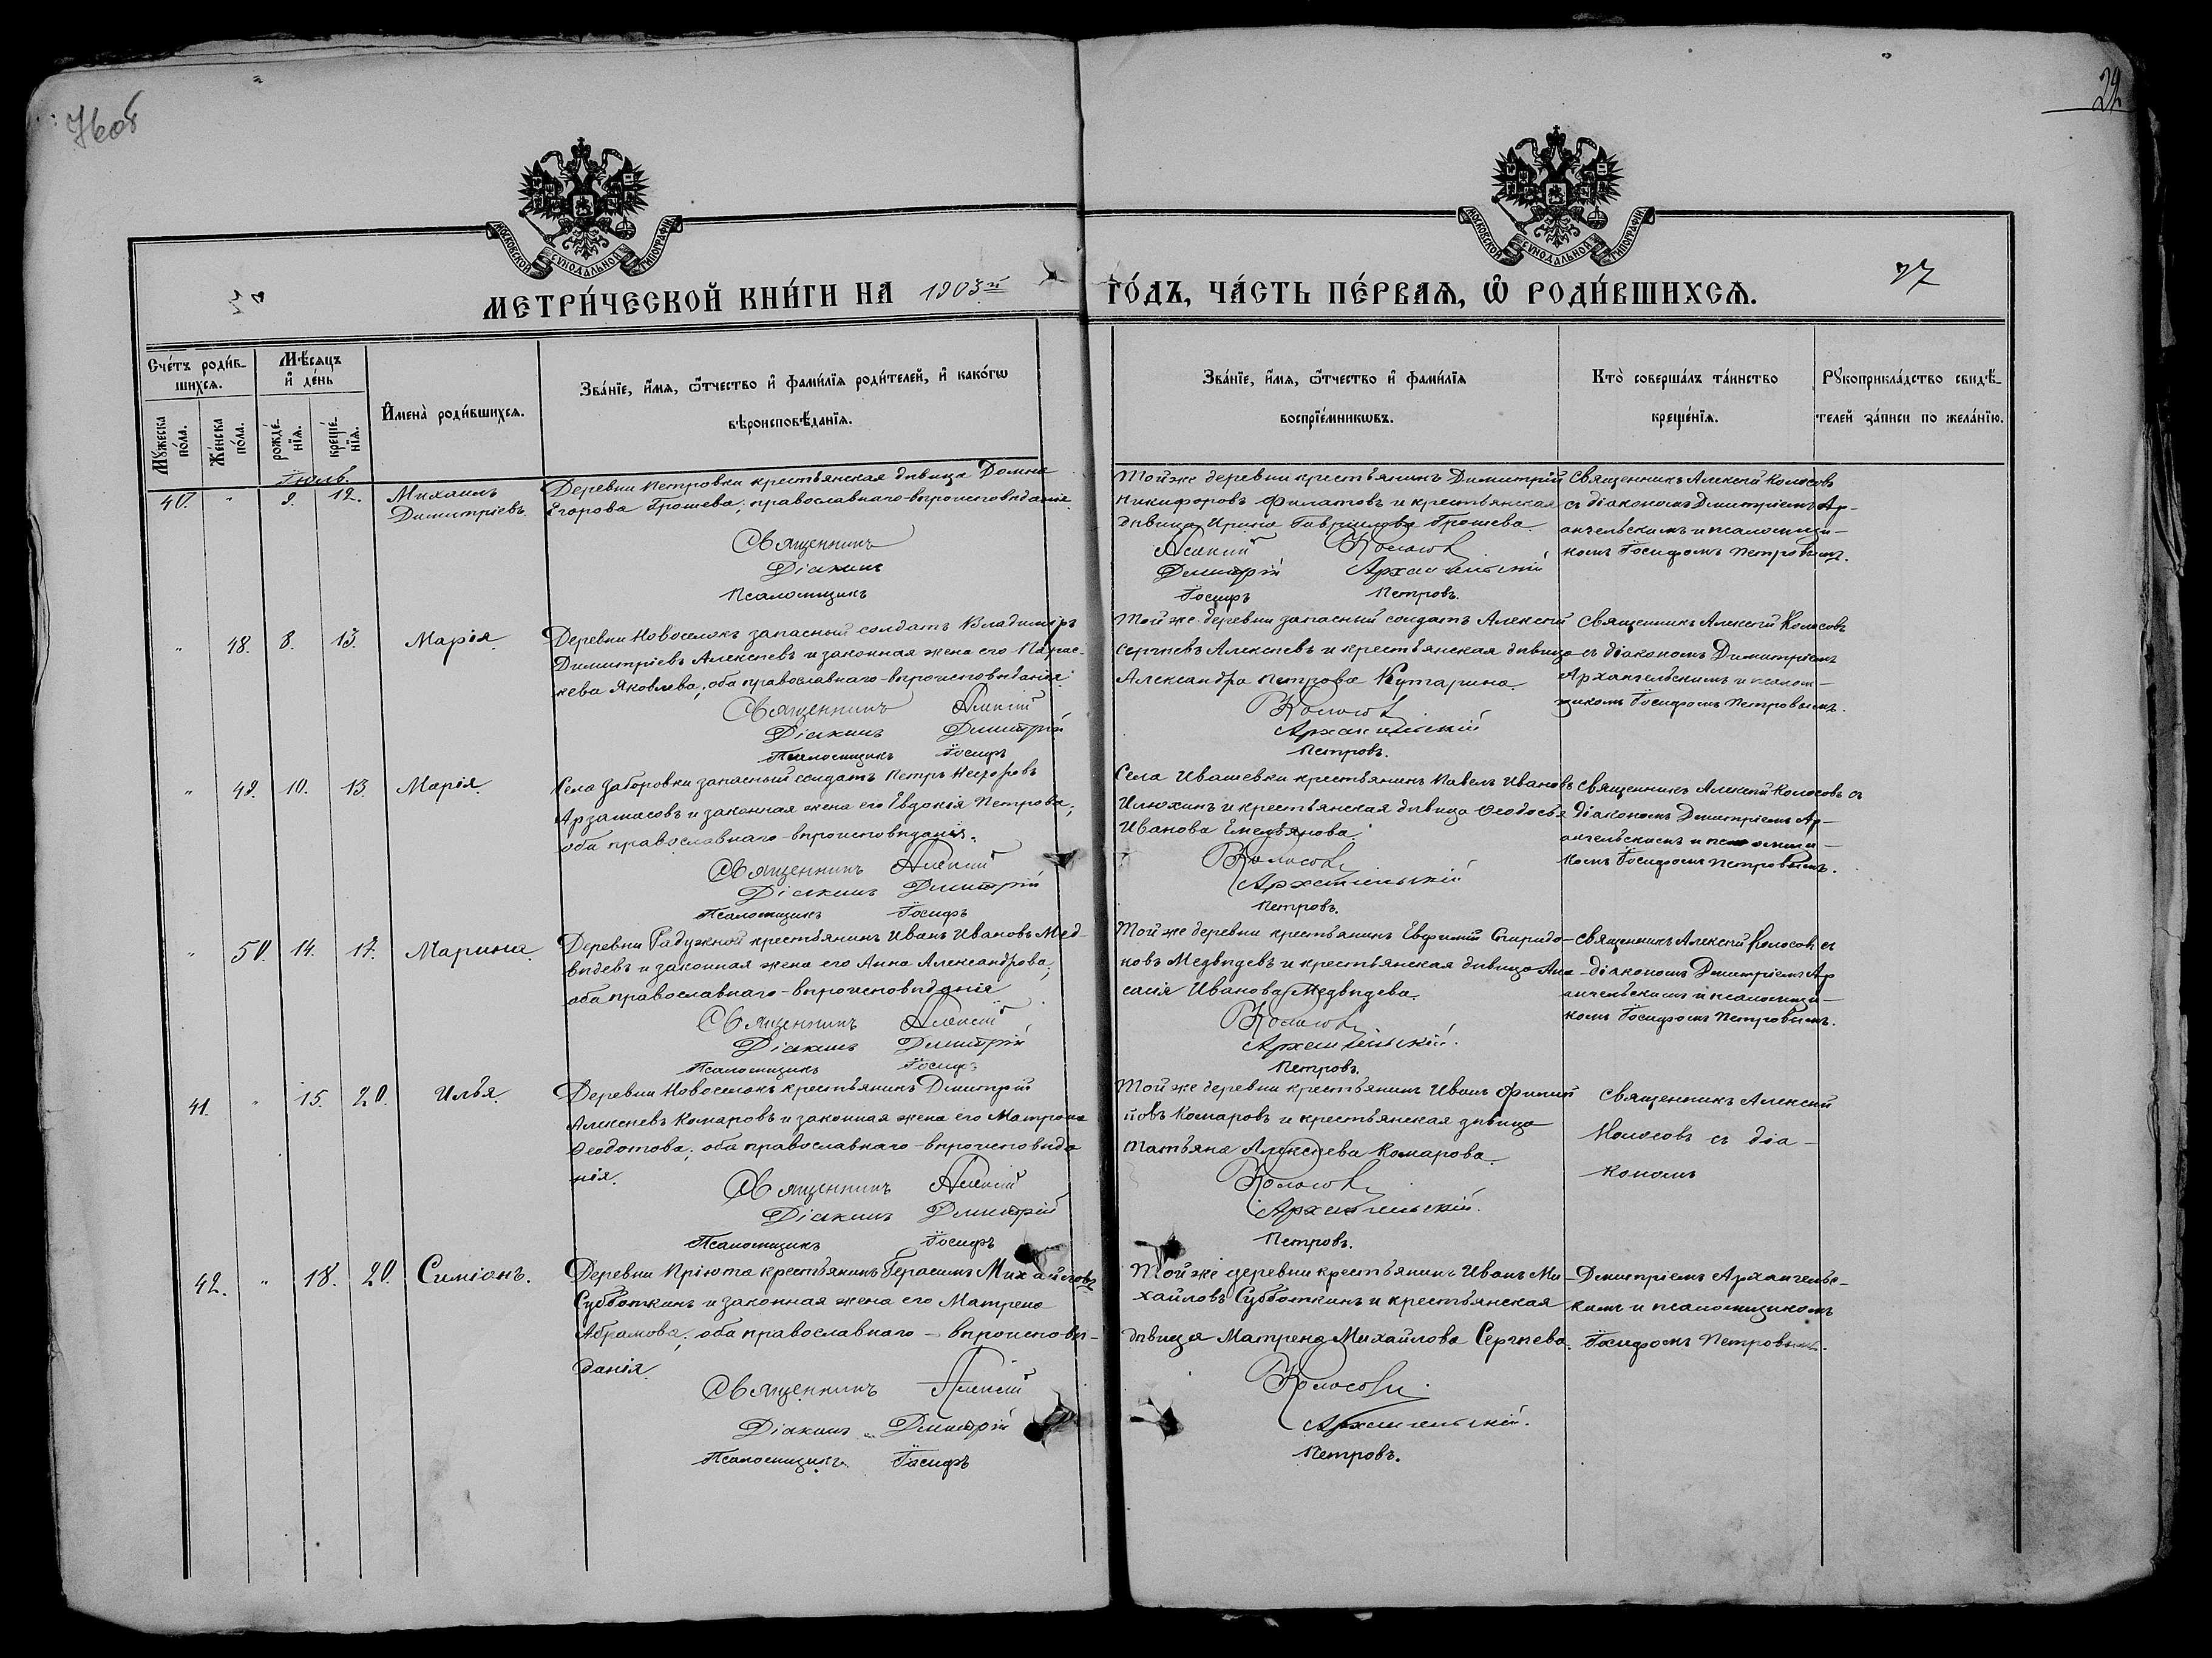 29
МОСКОВСКОЙ СУНОДАЛЬНОЙ ТИПОГРАФІИ
МОСКОВСКОЙ СУНОДАЛЬНОЙ ТИПОГРАФІИ
МЕТРИ́ЧЕСКОЙ КНИ́ГИ НА 1903й ГО́ДЪ, ЧА́СТЬ ПЕ́РВАѦ, Ѡ҆ РОДИ́ВШИХСѦ.
77
Сче́тъ роди́в-
шихсѧ.
Мꙋжеска по́ла.
Же́нска по́ла.
Мѣ́сѧцъ
и҆ де́нь
рожде́нїѧ.
креще́нїѧ.
И҆мена̀ роди́вшихсѧ.
Зва́нїе, и҆́мѧ, ѻ҆́тчество и҆ фами́лїѧ роди́телей, и҆ како́гѡ
вѣроисповѣ́данїѧ.
Зва́нїе, и҆́мѧ, ѻ҆́тчество и҆ фами́лїѧ
воспрїе́мникѡвъ.
Кто̀ соверша́лъ та́инство
креще́нїѧ.
Рꙋкоприкла́дство свидѣ́-
телей за́писи по жела́нїю.
Іюль.
40. " 9. 12. Михаилъ
Димитріевъ.
Деревни Петровки крестьянская дѣвица Домна
Егорова Грошева, православнаго вѣроисповѣданія.
Священникъ
Діаконъ
Псаломщикъ
Той же деревни крестьянинъ Димитрій
Никифоровъ Филатовъ и крестьянская
дѣвица Ирина Гаврилова Грошева.
Алексій Колосовъ
Димитрій Архангельскій
Іосифъ Петровъ.
Священникъ Алексій Колосовъ
съ діакономъ Димитріемъ Ар-
хангельскимъ и псаломщи-
комъ Іосифомъ Петровымъ.
" 48. 8. 13. Марія.
Деревни Новоселокъ запасный солдатъ Владиміръ
Димитріевъ Алексѣевъ и законная жена его Парас-
кева Яковлева, оба православнаго вѣроисповѣданія.
Священникъ Алексій
Діаконъ Димитрій
Псаломщикъ Іосифъ
Той же деревни запасный солдатъ Алексѣй
Сергѣевъ Алексѣевъ и крестьянская дѣвица
Александра Петрова Кутарина.
Колосовъ
Архангельскій
Петровъ.
Священникъ Алексій Колосовъ
съ діакономъ Димитріемъ
Архангельскимъ и псалом-
щикомъ Іосифомъ Петровымъ.
" 49. 10. 13. Марія.
Села Заборовки запасный солдатъ Петръ
Арзамасовъ и законная жена его Евдокія Петрова,
оба православнаго вѣроисповѣданія.
Священникъ Алексій
Діаконъ Димитрій
Псаломщикъ Іосифъ
Села Ивашевки крестьянинъ Павелъ Ивановъ
Илюхинъ и крестьянская дѣвица Ѳеодосья
Иванова Емельянова.
Колосовъ
Архангельскій
Петровъ.
Священникъ Алексій Колосовъ съ
діакономъ Димитріемъ Ар-
хангельскимъ и псаломщи-
комъ Іосифомъ Петровымъ.
" 50. 14. 17. Марина.
Деревни Радужной крестьянинъ Иванъ Ивановъ Мед-
вѣдевъ и законная жена его Анна Александрова,
оба православнаго вѣроисповѣданія
Священникъ Алексій
Діаконъ Димитрій
Псаломщикъ Іосифъ
Той же деревни крестьянинъ Евфимій Спиридо-
новъ Медвѣдевъ и крестьянская дѣвица Ана-
сасія Иванова Медвѣдева.
Колосовъ
Архангельскій.
Петровъ.
Священникъ Алексій Колосовъ съ
діакономъ Димитріемъ Ар
хангельскимъ и псаломщи-
комъ Іосифомъ Петровымъ.
41. " 15. 20. Илья.
Деревни Новоселокъ крестьянинъ Димитрій
Алексѣевъ Комаровъ и законная жена его Матрона
Ѳеодотова, оба православнаго вѣроисповѣда
нія.
Священникъ Алексій
Діаконъ Димитрій
Псаломщикъ Іосифъ
Той же деревни крестьянинъ Иванъ Филип
повъ Комаровъ и крестьянская дѣвица
Татьяна Алексѣева Комарова.
Колосовъ
Архангельскій.
Петровъ.
Священникъ Алексій
Колосовъ съ діа-
кономъ
42. " 18. 20. Симіонъ.
Деревни Пріюта крестьянинъ Герасимъ Михайловъ
Субботкинъ и законная жена его Матрена
Абрамова, оба православнаго вѣроисповѣ-
данія.
Священникъ Алексій
Діаконъ Димитрій
Псаломщикъ Іосифъ
Той же деревни крестьянинъ Иванъ Ми-
хайловъ Субботкинъ и крестьянская
дѣвица Матрена Михайлова Сергѣева.
Колосовъ
Архангельскій.
Петровъ.
Димитріемъ Архангельс-
кимъ и псаломщикомъ
Іосифомъ Петровымъ.